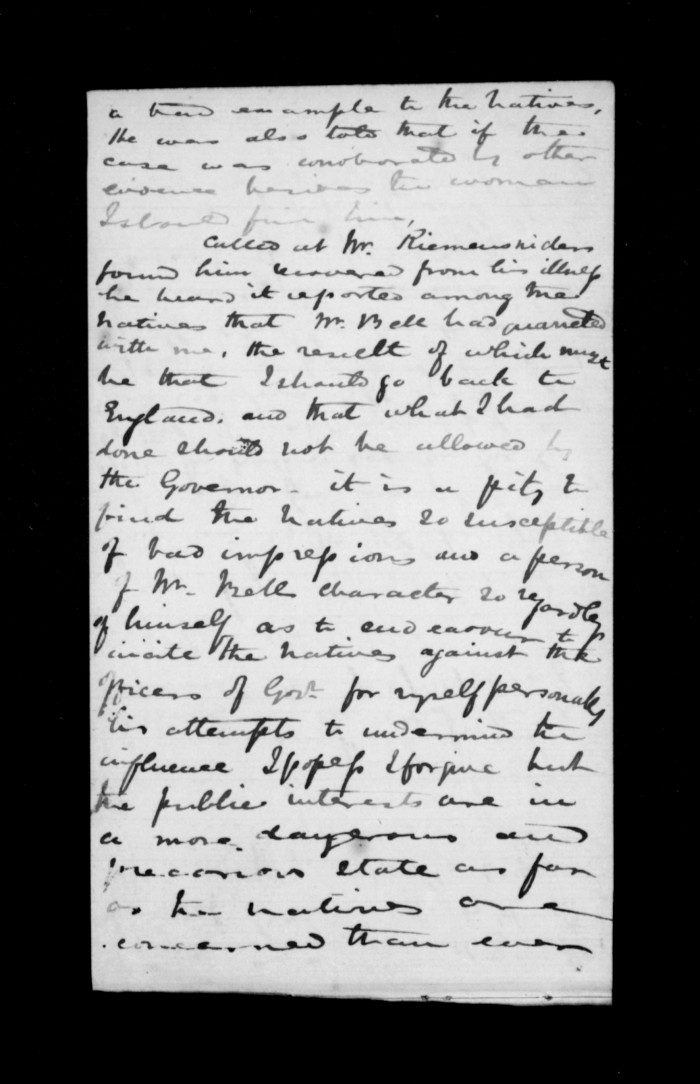 a bad example to the natives,
He was also told that if the
case was corroborated by other
evidence besides the woman
I should fine him,
Called at Mr. Riemensniders
found him recovered from his illness
he heard it reported among the
natives that Mr. Bell had quarreled
with me, the result of which must
be that I should go back to
England. and that what I had
done should not be allowed by
the Governor - it is a pity to
find the natives so susceptible
of bad impressions and a person
of Mr. Bells character so regardless
of himself as to endeavour to
incite the natives against the
officers of Govt. for myself personally
his attempts to undermine the
influence I possess I forgive but
the public interests are in
a more dangerous and
precarious state as far
as the natives are
concerned than ever